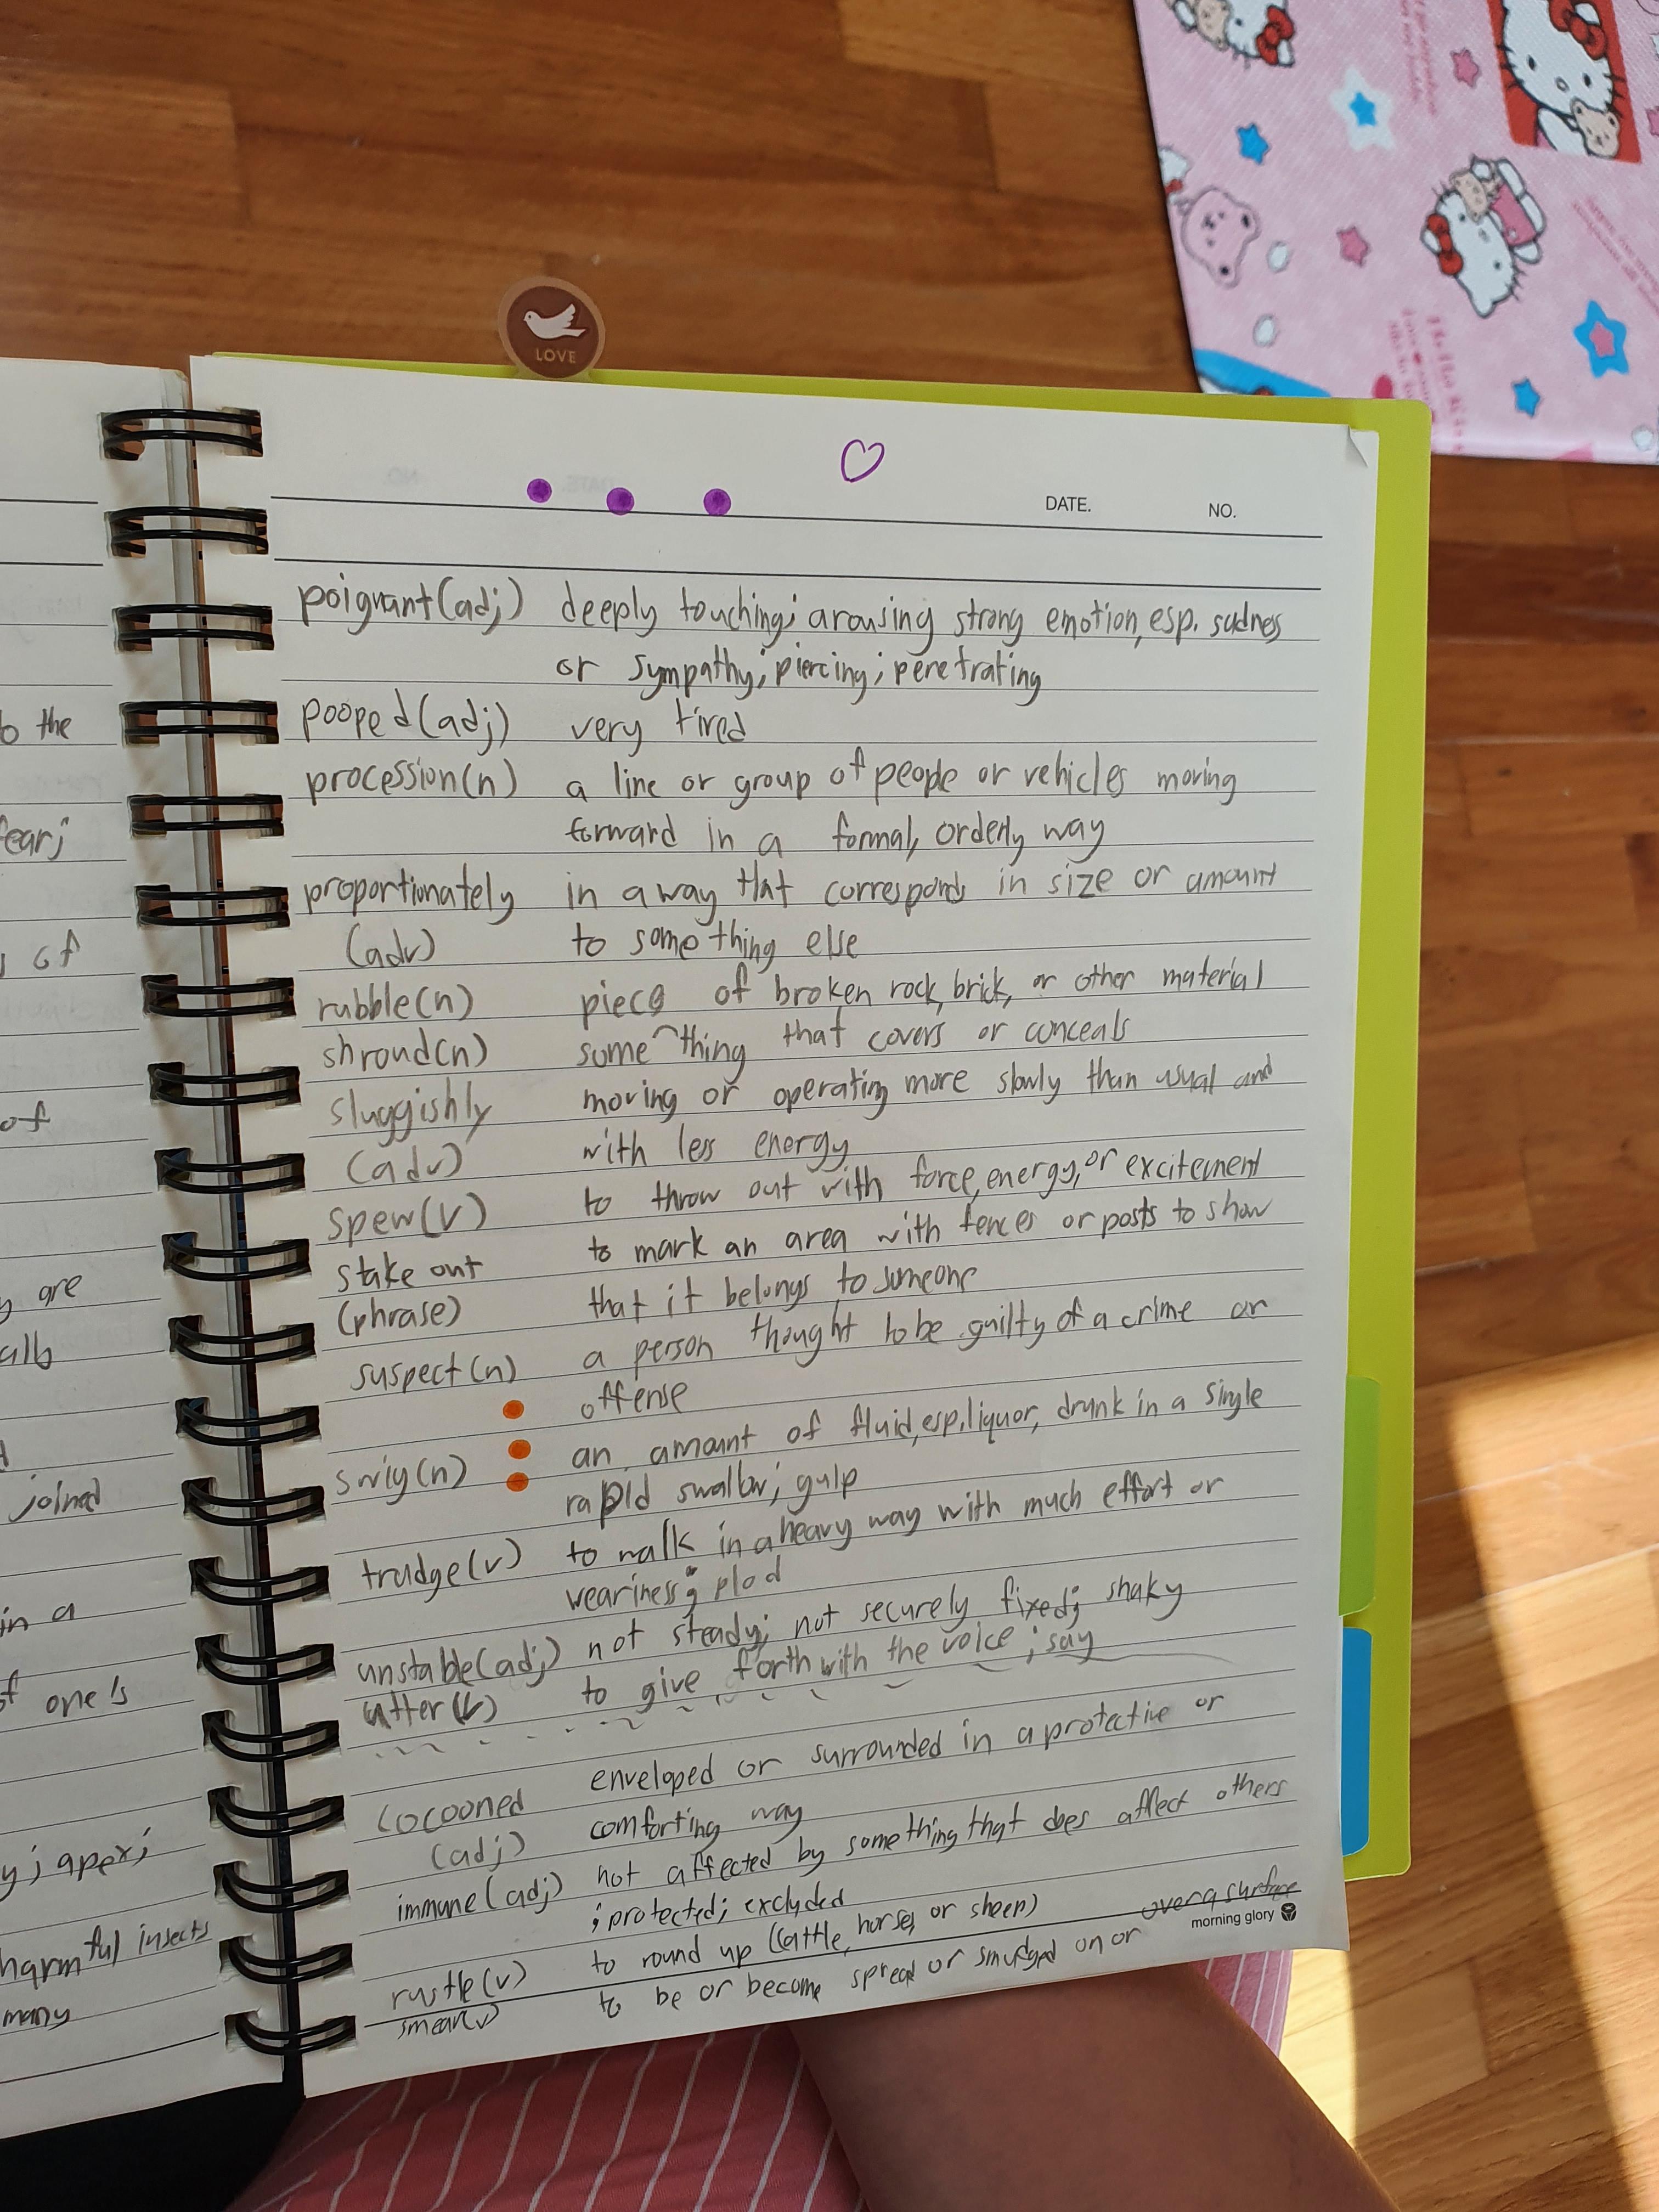 LOVE
DATE. NO.
poignant(adj) deeply touching; arousing strong emotion, esp. sadness
or sympathy; piercing; penetrating
pooped(adj) very tired
procession(n) a line or group of people or vehicles moving
forward in a formal, orderly way
proportionately in a way that corresponds in size or amount
(adv) to something else
rubble(n) piece of broken rock, brick, or other material
shroud(n) something that covers or conceals
sluggishly moving or operating more slowly than usual and
(adv) with less energy
spew(v) to throw out with force, energy, or excitement
stake out to mark an area with fences or posts to show
(phrase) that it belongs to someone
suspect(n) a person thought to be guilty of a crime or
offense
swig(n) an amount of fluid, esp. liquor, drunk in a single
rapid swallow; gulp
trudge(v) to walk in a heavy way with much effort or
weariness; plod
unstable(adj) not steady; not securely fixed; shaky
utter(v) to give forth with the voice; say
cocooned enveloped or surrounded in a protective or
(adj) comforting way
immune(adj) not affected by something that does affect others
; protected; excluded
rustle(v) to round up (cattle, horses, or sheep)
smear(v) to be or become spread or smudged on or over a surface
morning glory
o the
fear;
of
of
are
alb
joined
in a
of one's
y; apex;
harmful insects
many